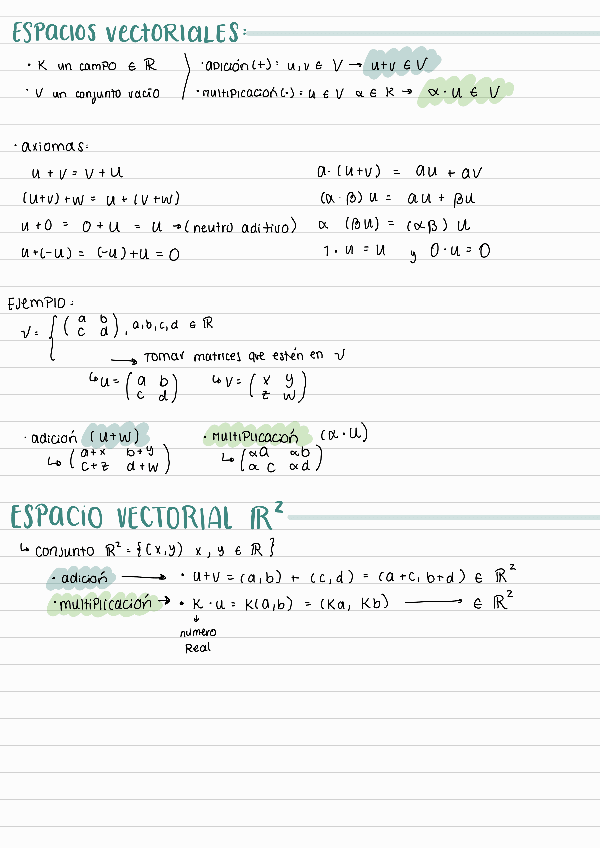 ESPACIOS VECTORIALES:
· K un campo ∈ ℝ
· V un conjunto vacío
· adición (+): u, v ∈ V → u+v ∈ V
· multiplicación (·): u ∈ V α ∈ K → α · u ∈ V
· axiomas:
u + v = v + u
(u+v) + w = u + (v + w)
u + 0 = 0 + u = u → (neutro aditivo)
u + (-u) = (-u) + u = 0
a · (u+v) = au + av
(α · β) u = au + βu
α (βu) = (αβ) u
1 · u = u y 0 · u = 0
Ejemplo:
V = { ( a b
c d ) , a,b,c,d ∈ ℝ
→ Tomar matrices que estén en V
↳ u = ( a b
c d )
↳ v = ( x y
z w )
· adición (u+w)
↳ ( a+x b+y
c+z d+w )
· Multiplicación (α · u)
↳ ( αa αb
α c αd )
ESPACIO VECTORIAL ℝ²
↳ conjunto ℝ² = {(x,y) x, y ∈ ℝ }
· adición → · u+v = (a,b) + (c,d) = (a+c, b+d) ∈ ℝ²
· multiplicación → · K · u = K(a,b) = (Ka, Kb) → ∈ ℝ²
↓
numero
Real